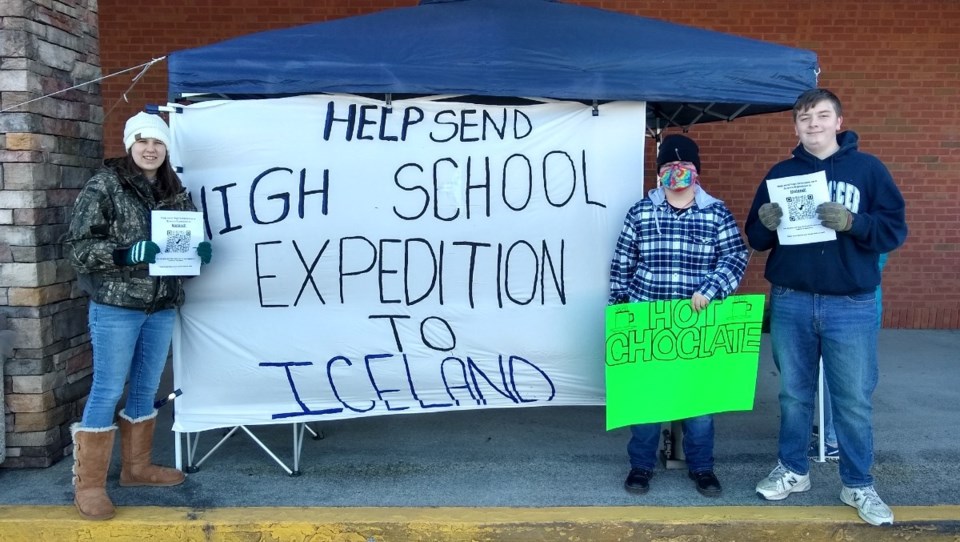 HELP SEND
HIGH SCHOOL
EXPEDITION
TO
ICELAND
HOT
CHOCLATE